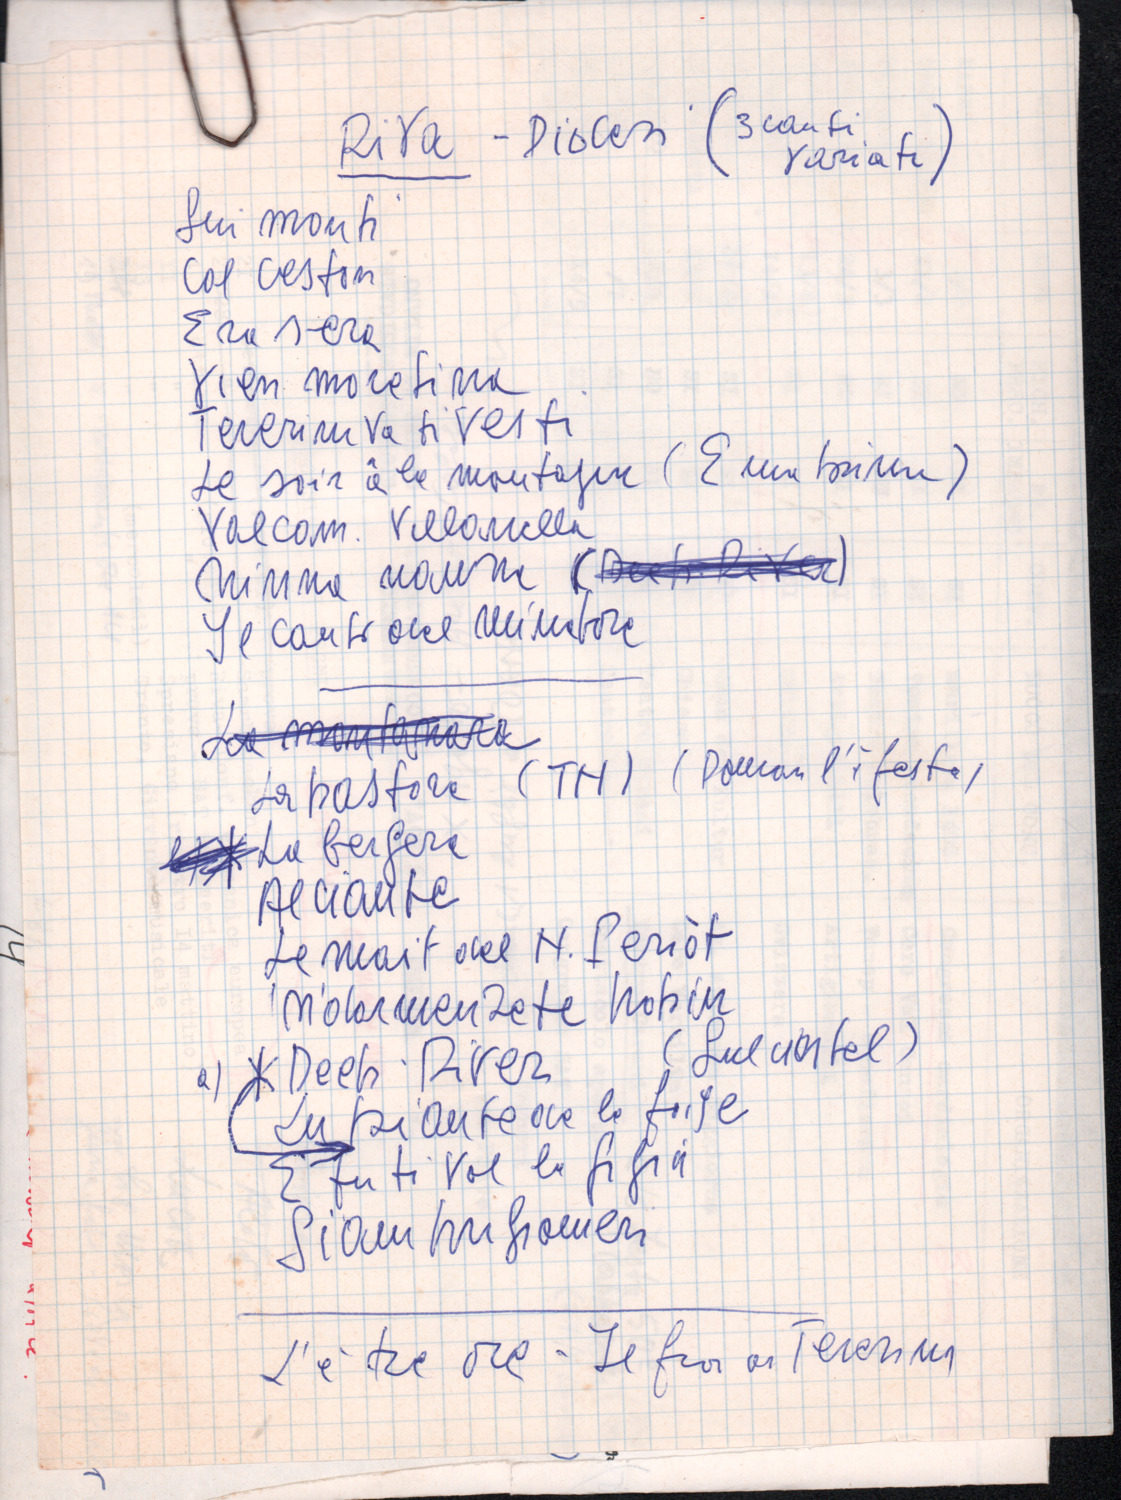 Riva - Diocesi (3 canti
variati)
Sui monti
Col ceston
Era sera
Vien moretina
Teresina va ti vesti
Le soir à la montagne (E una prima)
Valcam. Villanella
Ninna nanna (Deep River)
Il canto del minatore
La montanara
La pastora (TN) (Doman l'è festa)
La bergera
Al ciante
Le mait del N. Periòt
'Ndormenzete popin
a) * Deep River (Sul ciastel)
La piante de la foije
E fu ti val la Gigia
Siam prigionieri
L'è tre ore - Il fior di Teresina
14